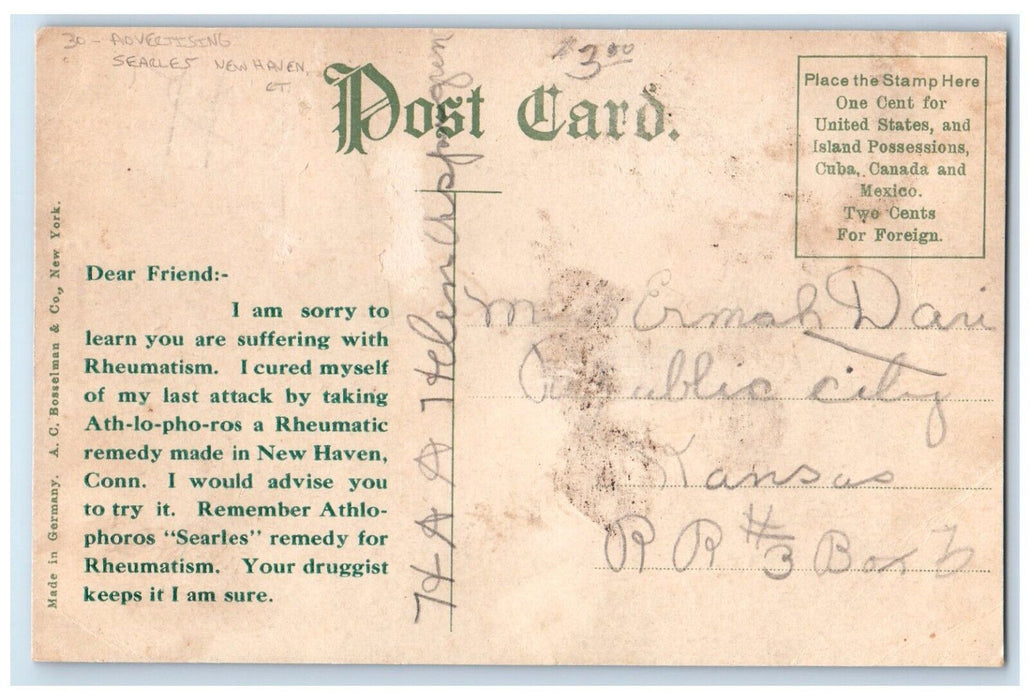 30 - ADVERTISING
SEARLES NEW HAVEN,
CT.
$3.00
Post Card.
Place the Stamp Here
One Cent for
United States, and
Island Possessions,
Cuba, Canada and
Mexico.
Two Cents
For Foreign.
Made in Germany. A. C. Bosselman & Co., New York.
Dear Friend:-
I am sorry to
learn you are suffering with
Rheumatism. I cured myself
of my last attack by taking
Ath-lo-pho-ros a Rheumatic
remedy made in New Haven,
Conn. I would advise you
to try it. Remember Athlo-
phoros "Searles" remedy for
Rheumatism. Your druggist
keeps it I am sure.
Helen
Ermah Davi
city
Kansas
R R #3 Box